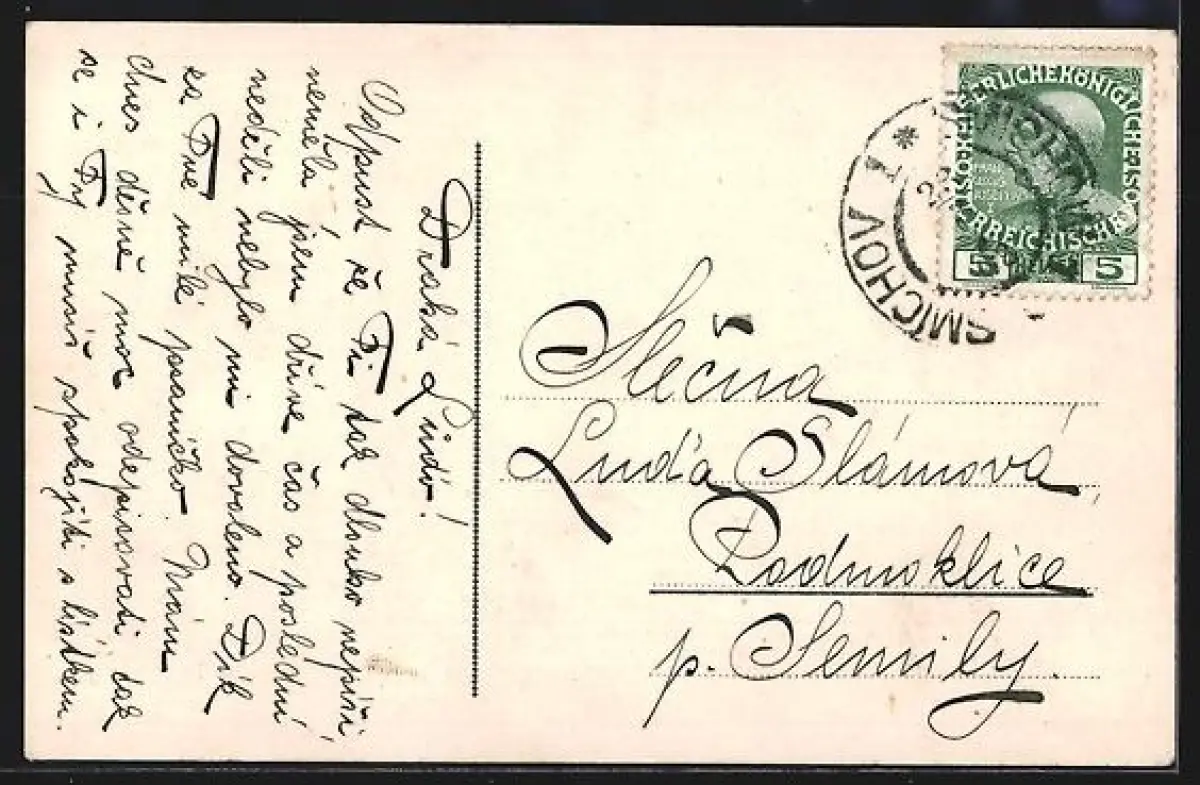 Drahá Lůdo!
Odpusť že Ti tak dlouho nepíši,
neměla jsem dříve čas a poslední
neděli nebylo mi dovoleno. Dík
za Tvé milé psaníčko. Mám
dnes děsně moc odepisovati tak
se i Ty musíš spokojiti s lístkem.
Slečna
Luďa Slámová,
Podmoklice
p. Semily.
SMÍCHOV 1 *
KAISERLICHEKÖNIGLICHE
ÖSTERREICHISCHE
5 5